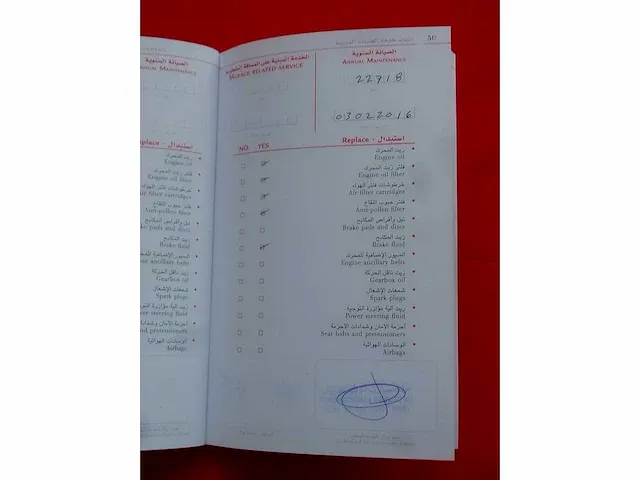 50
الصيانة السنوية
ANNUAL MAINTENANCE
22718
03022016
الخدمة المبنية على المسافة المقطوعة
MILEAGE RELATED SERVICE
استبدال - Replace
NO YES
زيت المحرك
Engine oil
فلتر زيت المحرك
Engine oil filter
خرطوشات فلتر الهواء
Air filter cartridges
فلتر حبوب اللقاح
Anti-pollen filter
تيل وأقراص المكابح
Brake pads and discs
زيت المكابح
Brake fluid
السيور الإضافية للمحرك
Engine ancillary belts
زيت ناقل الحركة
Gearbox oil
شمعات الإشعال
Spark plugs
زيت آلية مؤازرة التوجيه
Power steering fluid
أحزمة الأمان وشدادات الأحزمة
Seat belts and pretensioners
الوسادات الهوائية
Airbags
الصيانة السنوية
ANNUAL MAINTENANCE
زيت المحرك
Engine oil
فلتر زيت المحرك
Engine oil filter
خرطوشات فلتر الهواء
Air filter cartridges
فلتر حبوب اللقاح
Anti-pollen filter
تيل وأقراص المكابح
Brake pads and discs
زيت المكابح
Brake fluid
السيور الإضافية للمحرك
Engine ancillary belts
زيت ناقل الحركة
Gearbox oil
شمعات الإشعال
Spark plugs
steering fluid
pretensioners
الوسادات الهوائية
Airbags